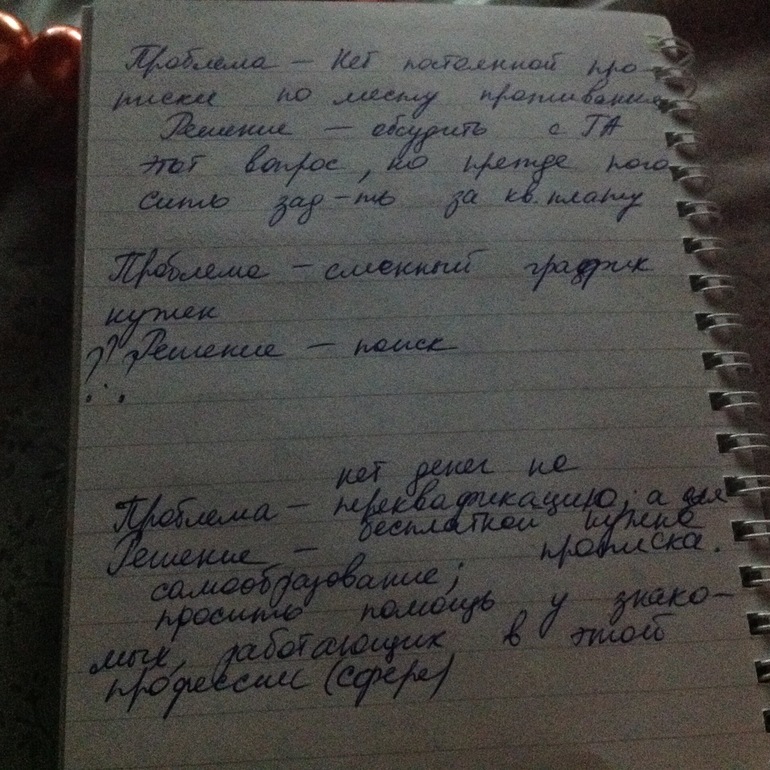 Проблема – Нет постоянной про-
писки по месту проживания
Решение – обсудить с ГА
этот вопрос, но прежде пога
сить зад-ть за кв. плату
Проблема – сменный график
нужен
?? Решение – поиск
нет денег на
Проблема – переквафикацию; а для
бесплатной нужна
Решение – прописка.
самообразование;
просить помощь у знако-
мых, работающих в этой
профессии (сфере)